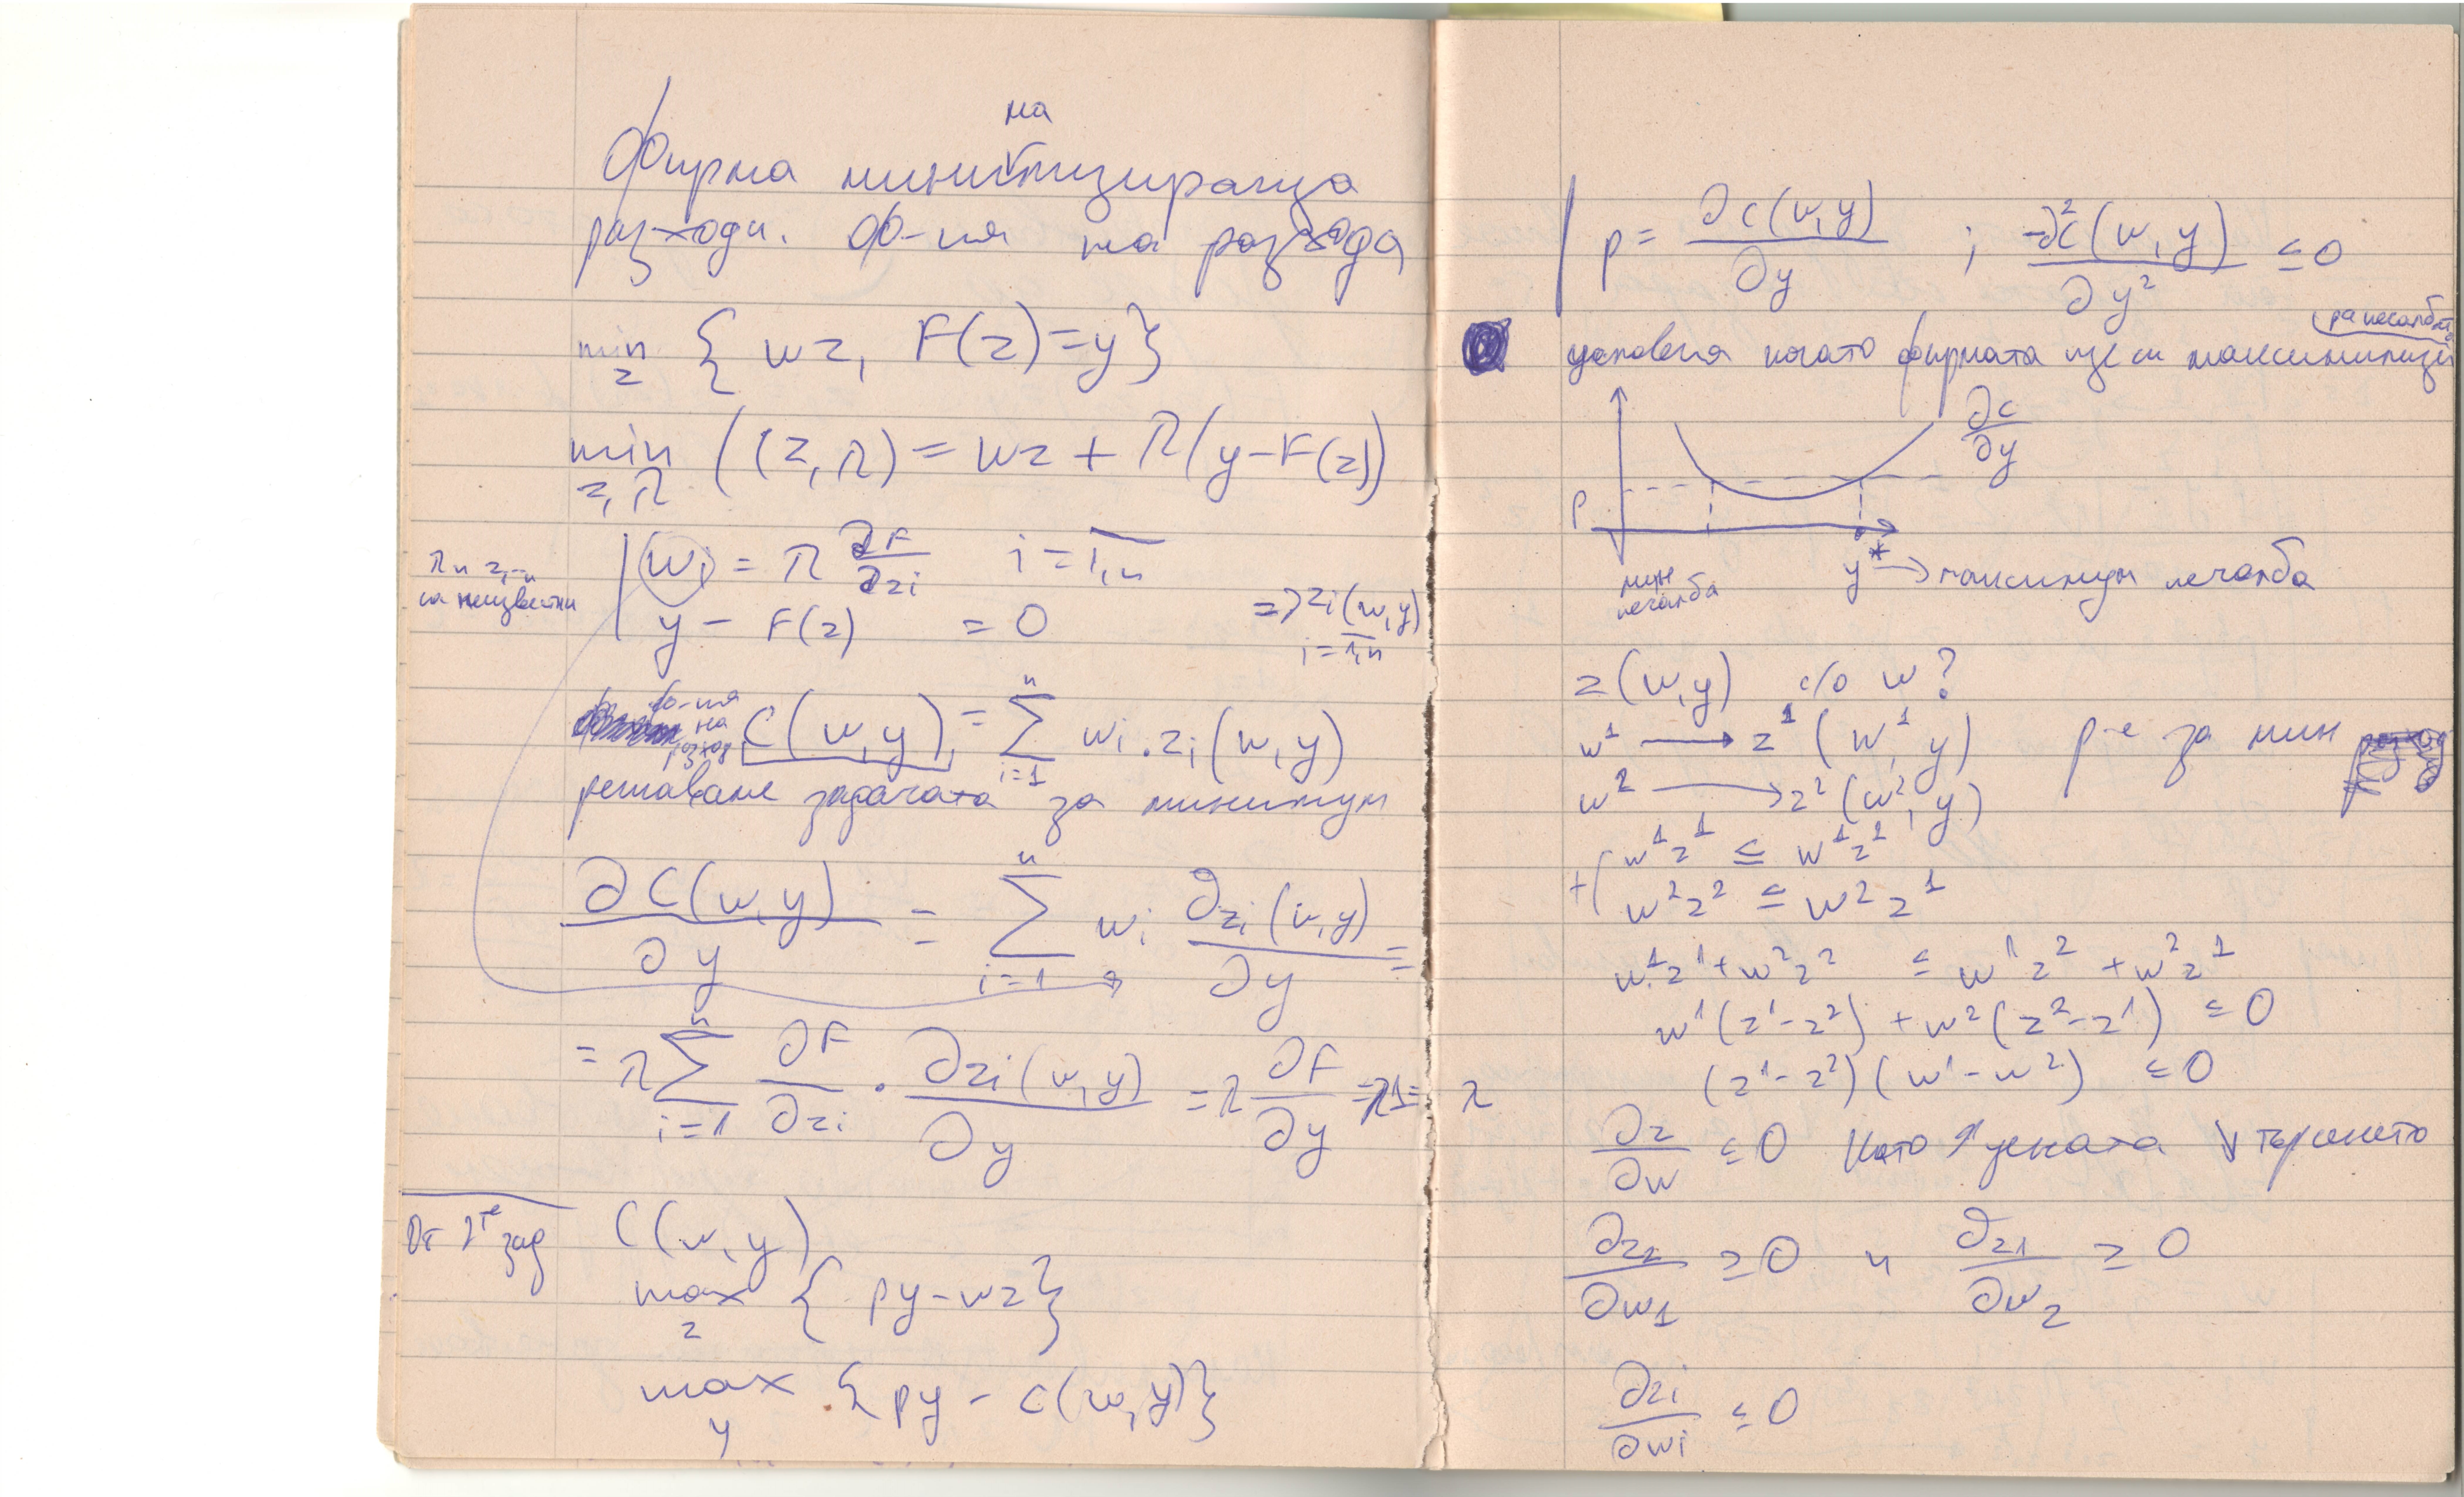 на
Фирма минимизираща
разходи. Ф-ия на разхода
min z { wz, F(z)=y}
min z,λ ((z,λ) = wz + λ(y-F(z))
wi = λ ∂F/∂zi i = 1,n
λ и z1-n
са неизвестни
y - F(z) = 0 => zi(w,y)
i=1,n
ф-ия на разход C(w,y) = n∑i=1 wi.zi(w,y)
решаваме задачата за минимум
∂C(w,y)/∂y = n∑i=1 wi ∂zi(w,y)/∂y =
= λ n∑i=1 ∂F/∂zi . ∂zi(w,y)/∂y = λ ∂F/∂y = λ1 = λ
От 2те зад
C(w,y)
max z { py-wz}
max y {py - c(w,y)}
p = ∂c(w,y)/∂y ; -∂²c(w,y)/∂y² ≤ 0
условия когато фирмата ще си
∂c/∂y
p
y* → максимум печалба
мин
печалба
z(w,y) с/о w?
w¹ → z¹(w¹,y) р-е за мин
w² → z²(w²,y)
+( w¹z¹ ≤ w¹z²
w²z² ≤ w²z¹
w¹z¹+w²z² ≤ w¹z²+w²z¹
w¹(z¹-z²)+w²(z²-z¹) ≤ 0
(z¹-z²)(w¹-w²) ≤ 0
∂z/∂w ≤ 0 Като ↑ цената ↓ търсенето
∂z2/∂w1 ≥ 0 и ∂z1/∂w2 ≥ 0
∂zi/∂wi ≤ 0